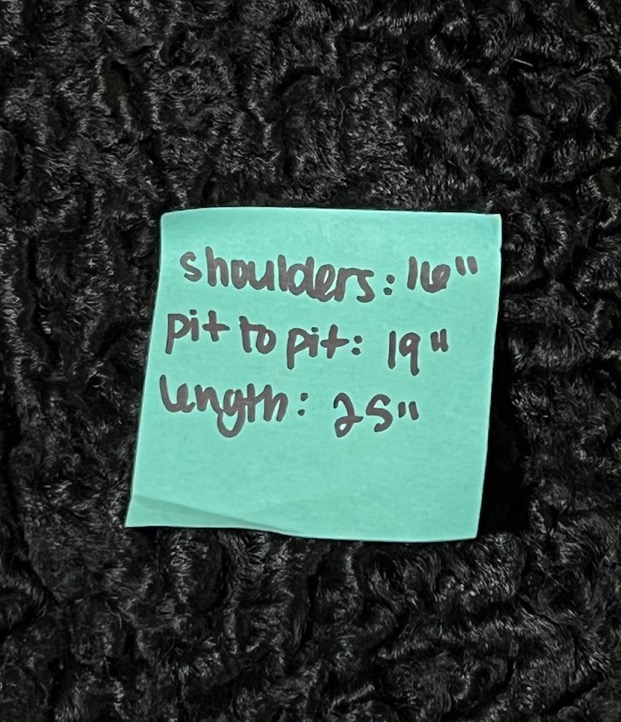 shoulders: 16"
pit to pit: 19"
length: 25"